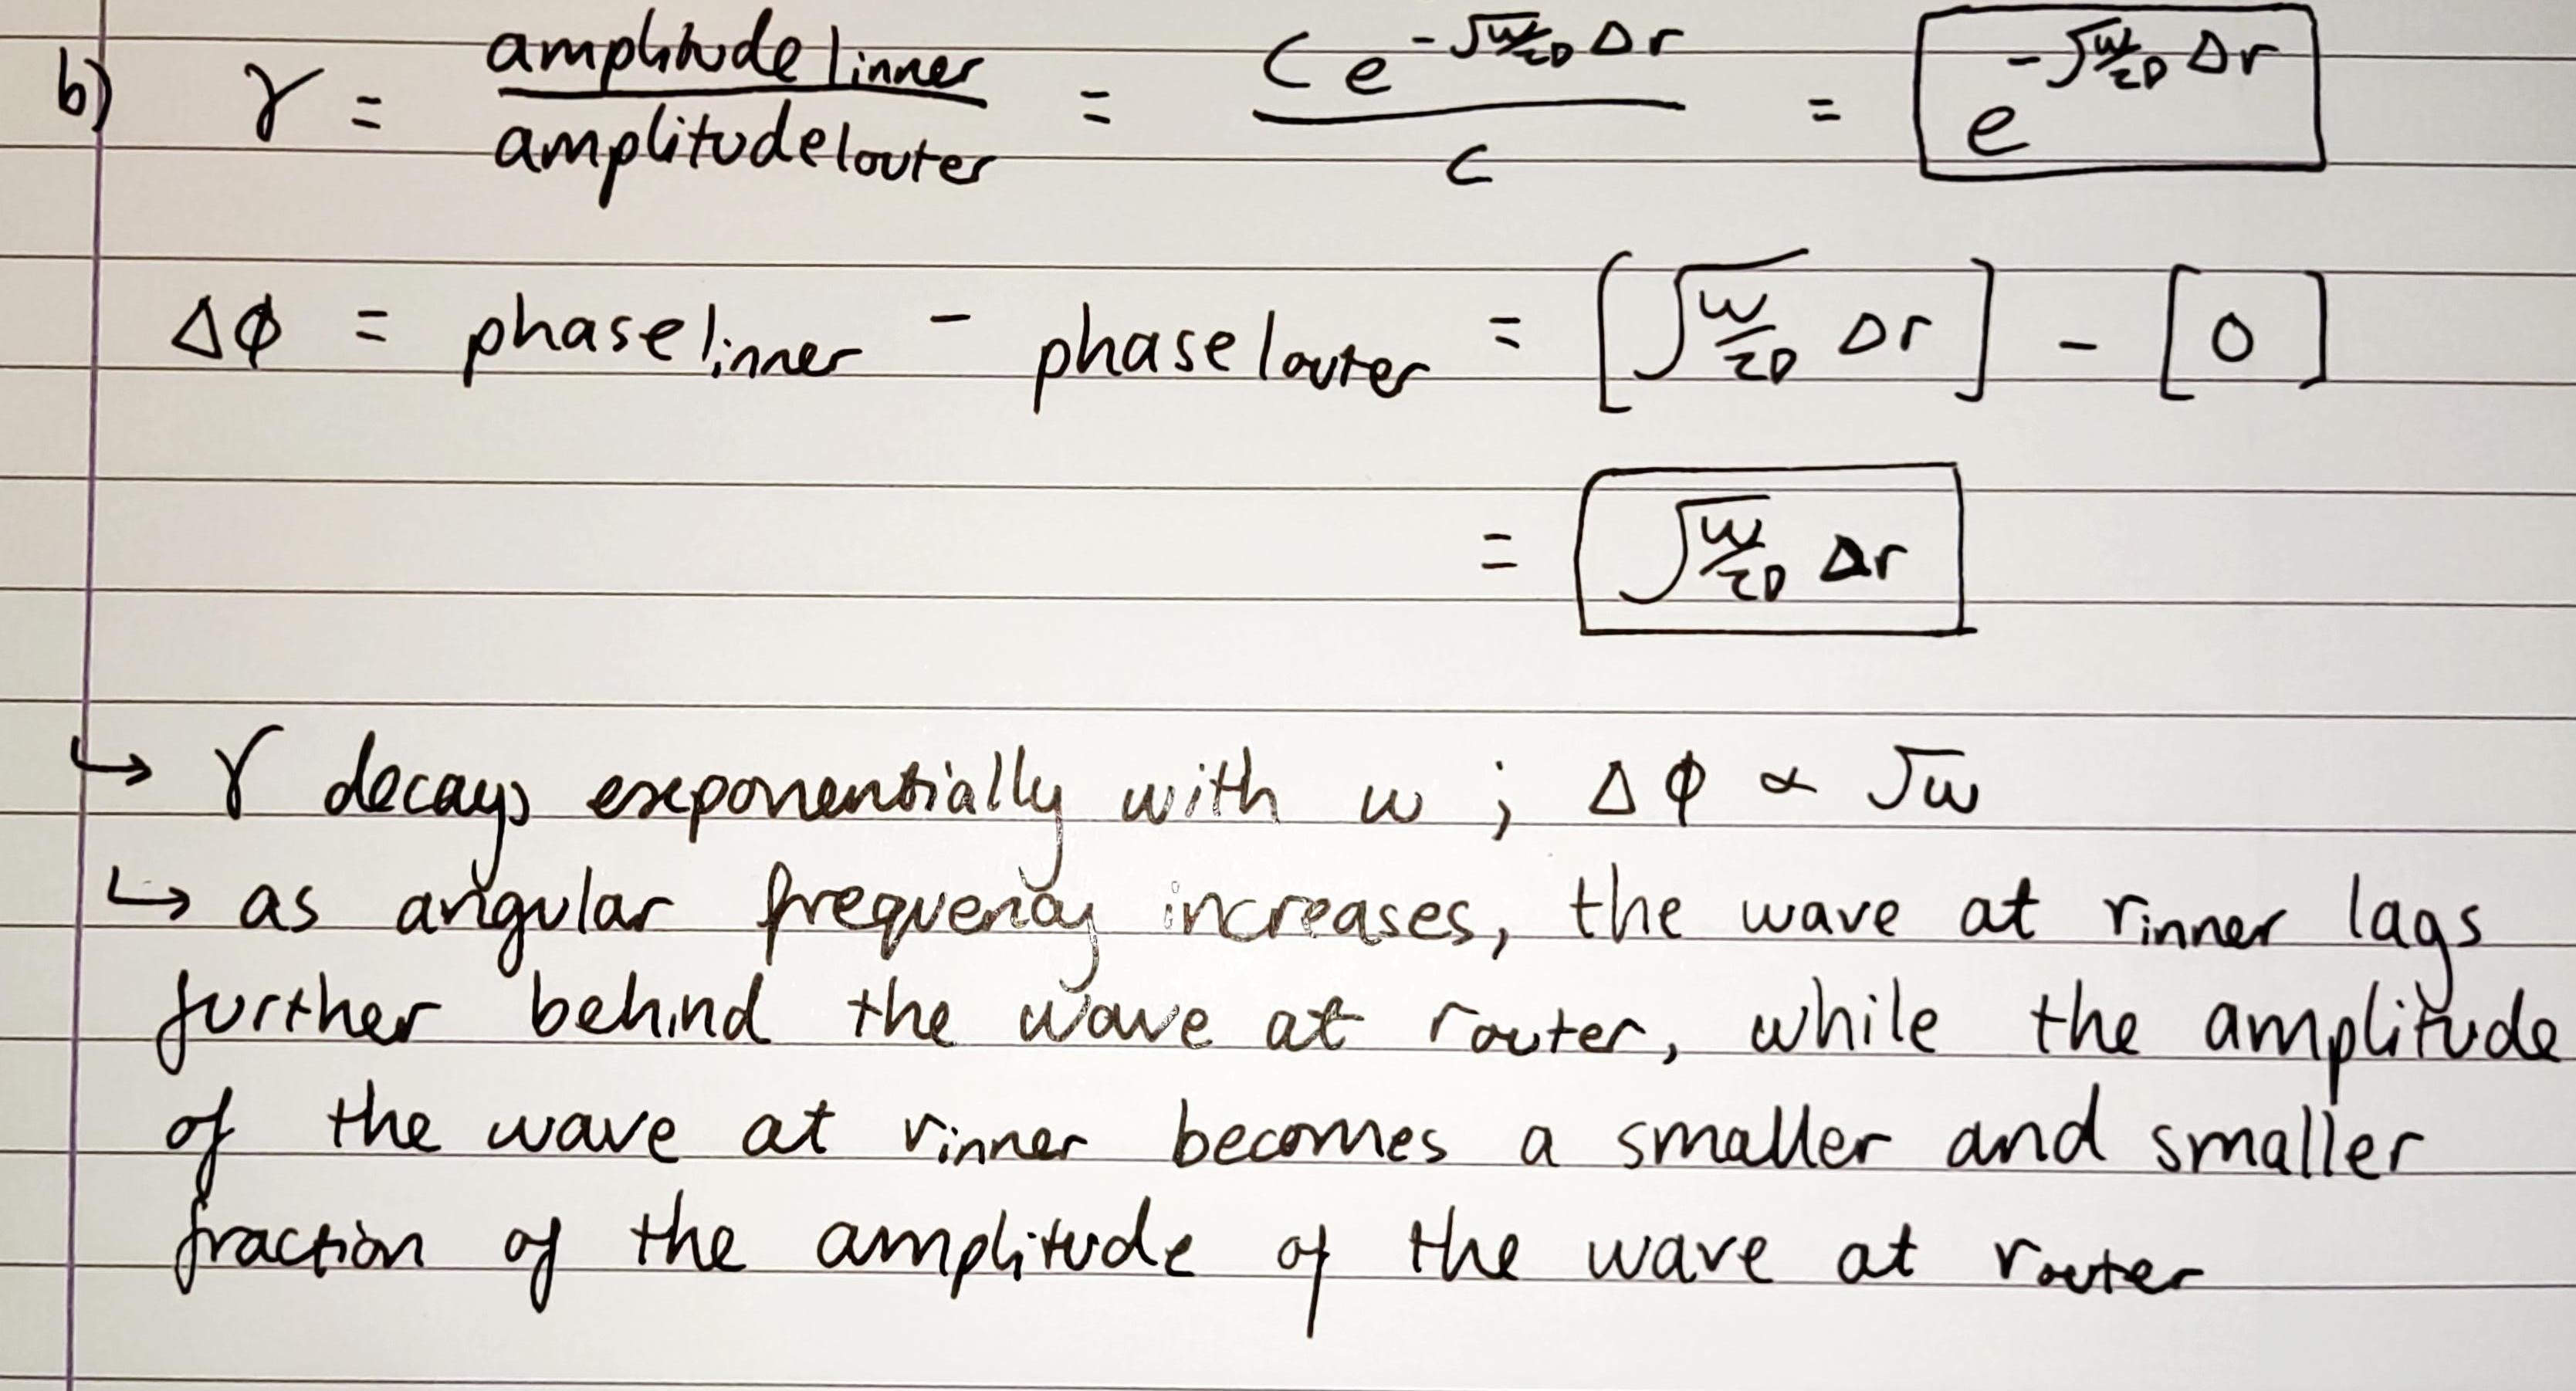 b) γ = amplitude|inner / amplitude|outer = Ce^(-√(ω/2D) Δr) / C = e^(-√(ω/2D) Δr)
Δϕ = phase|inner - phase|outer = [√(ω/2D) Δr] - [0]
= √(ω/2D) Δr
↳ γ decays exponentially with ω ; Δϕ ∝ √ω
↳ as angular frequency increases, the wave at rinner lags
further behind the wave at router, while the amplitude
of the wave at rinner becomes a smaller and smaller
fraction of the amplitude of the wave at router